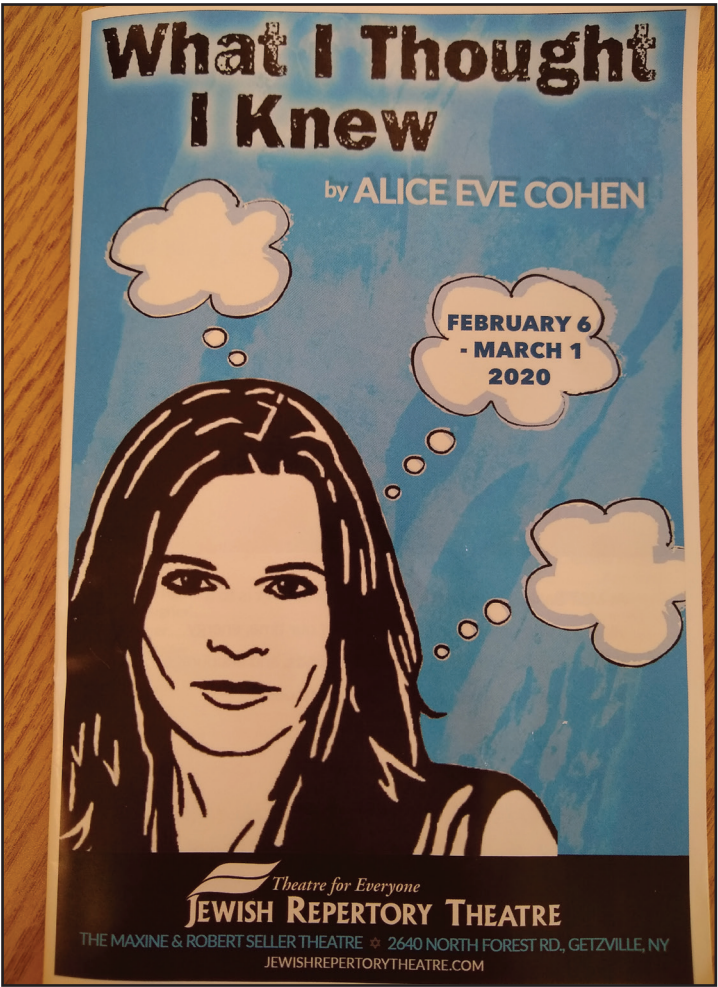 What I Thought
I Knew
by ALICE EVE COHEN
FEBRUARY 6
- MARCH 1
2020
Theatre for Everyone
JEWISH REPERTORY THEATRE
THE MAXINE & ROBERT SELLER THEATRE ✡ 2640 NORTH FOREST RD., GETZVILLE, NY
JEWISHREPERTORYTHEATRE.COM